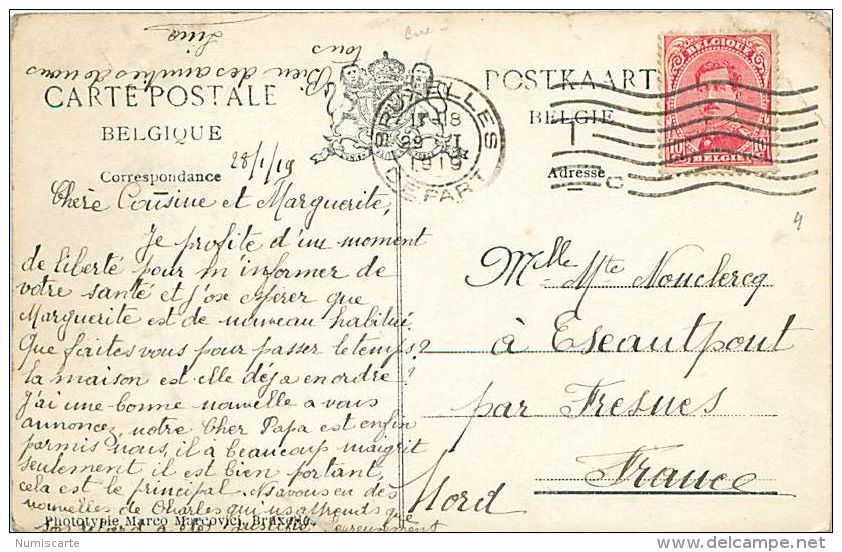 Bien des amitiés de nous
tous
CARTE POSTALE
BELGIQUE
POSTKAART
BELGIË
Correspondance
Adresse
28/1/19
BRUXELLES
18
29 I
1919
DEPART
BELGIQUE
10 10
BELGIE
Chère Cousine et Marguerite,
Je profite d'un moment
de liberté pour m'informer de
votre santé et j'ose espérer que
Marguerite est de nouveau habitué.
Que faites vous pour passer le temps?
la maison est elle déja en ordre?
J'ai une bonne nouvelle a vous
annoncez, notre Cher Papa est enfin
parmis nous, il a beaucoup maigrit
seulement il est bien portant
cela est le principal. Ns avous eu des
nouvelles de Charles qui ns apprends que
Melle Mte Nouclercq
à Escautpont
par Fresnes
Nord France
Phototypie Marco Marcovici, Bruxelles
Numiscarte
delcampe.net